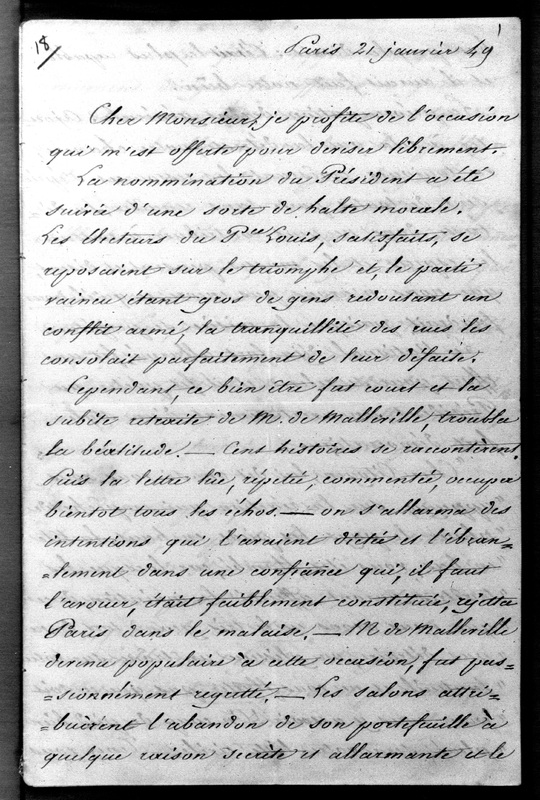 18/
1
Paris 21 janvier 49
Cher Monsieur, je profite de l'occasion
qui m'est offerte pour deviser librement.
La nommination du Président a été
suivie d'une sorte de halte morale.
Les électeurs du Pce Louis, satisfaits, se
reposaient sur le triomphe et, le parti
vaincu étant gros de gens redoutant un
conflit armé, la tranquillité des rues les
consolait parfaitement de leur défaite.
Cependant, ce bien être fut court et la
subite retraite de M. de Malleville, troubla
la béatitude. — Cent histoires se racontèrent.
Puis la lettre lûe, répétée, commentée, occupa
bientot tous les échos. — on s'allarma des
intentions qui l'avaient dictée et l'ébran=
=lement dans une confiance qui, il faut
l'avouer, était faiblement constituée, rejetta
Paris dans le malaise. — M de Malleville
devenu populaire à cette occasion, fut pas=
=sionnément regretté. — Les salons attri=
=buèrent l'abandon de son portefeuille à
quelque raison secrète et allarmante et le